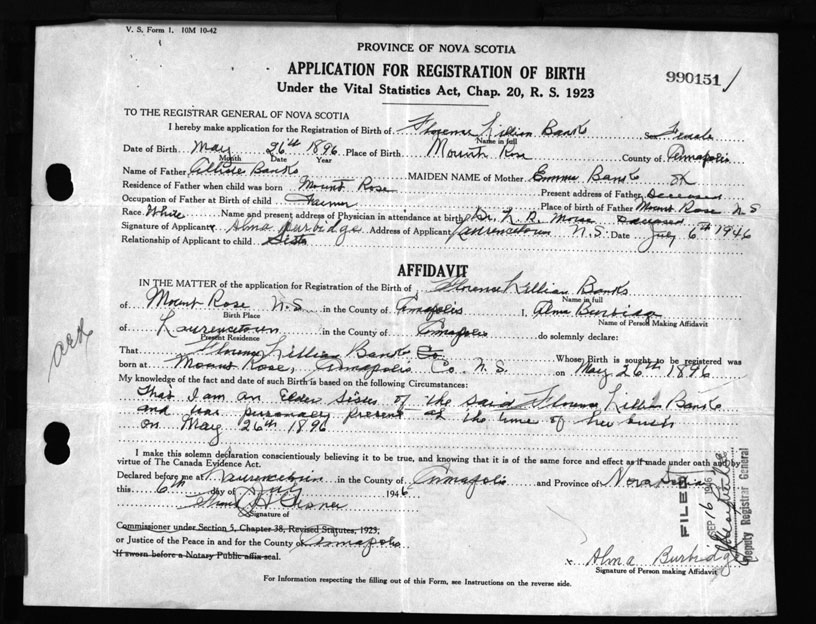 V. S. Form 1. 10M 10-42
PROVINCE OF NOVA SCOTIA
APPLICATION FOR REGISTRATION OF BIRTH
990151
Under the Vital Statistics Act, Chap. 20, R. S. 1923
TO THE REGISTRAR GENERAL OF NOVA SCOTIA
I hereby make application for the Registration of Birth of Florence Lillian Banks Sex Female
Name in full
Date of Birth May 26th 1896 Place of Birth Mount Rose County of Annapolis
Month Date Year
Name of Father Banks MAIDEN NAME of Mother Emma Banks
Residence of Father when child was born Mount Rose Present address of Father Deceased
Occupation of Father at Birth of child Farmer Place of birth of Father Mount Rose N S
Race White Name and present address of Physician in attendance at birth Dr. L. R. Morse
Signature of Applicant Alma Burbidge Address of Applicant Laurencetown N.S. Date July 6th 1946
Relationship of Applicant to child Sister
AFFIDAVIT
IN THE MATTER of the application for Registration of the Birth of Florence Lillian Banks
Name in full
of Mount Rose N.S. in the County of Annapolis I, Alma Burbidge
Birth Place Name of Person Making Affidavit
of Laurencetown in the County of Annapolis do solemnly declare:
Present Residence
That Florence Lillian Banks Whose Birth is sought to be registered was
born at Mount Rose, Annapolis Co. N.S. on May 26th 1896
My knowledge of the fact and date of such Birth is based on the following Circumstances:
That I am an Elder Sister of the said Florence Lillian Banks
and was personally present at the time of her birth
on May 26th 1896
I make this solemn declaration conscientiously believing it to be true, and knowing that it is of the same force and effect as if made under oath and by
virtue of The Canada Evidence Act.
Declared before me at Laurencetown in the County of Annapolis and Province of Nova Scotia
this 6th day of July 1946
Signature of
Commissioner under Section 5, Chapter 38, Revised Statutes, 1923,
or Justice of the Peace in and for the County of Annapolis
If sworn before a Notary Public affix seal.
x Alma Burbidge
Signature of Person making Affidavit
For Information respecting the filling out of this Form, see Instructions on the reverse side.
FILED
SEP 16 1946
Deputy Registrar General